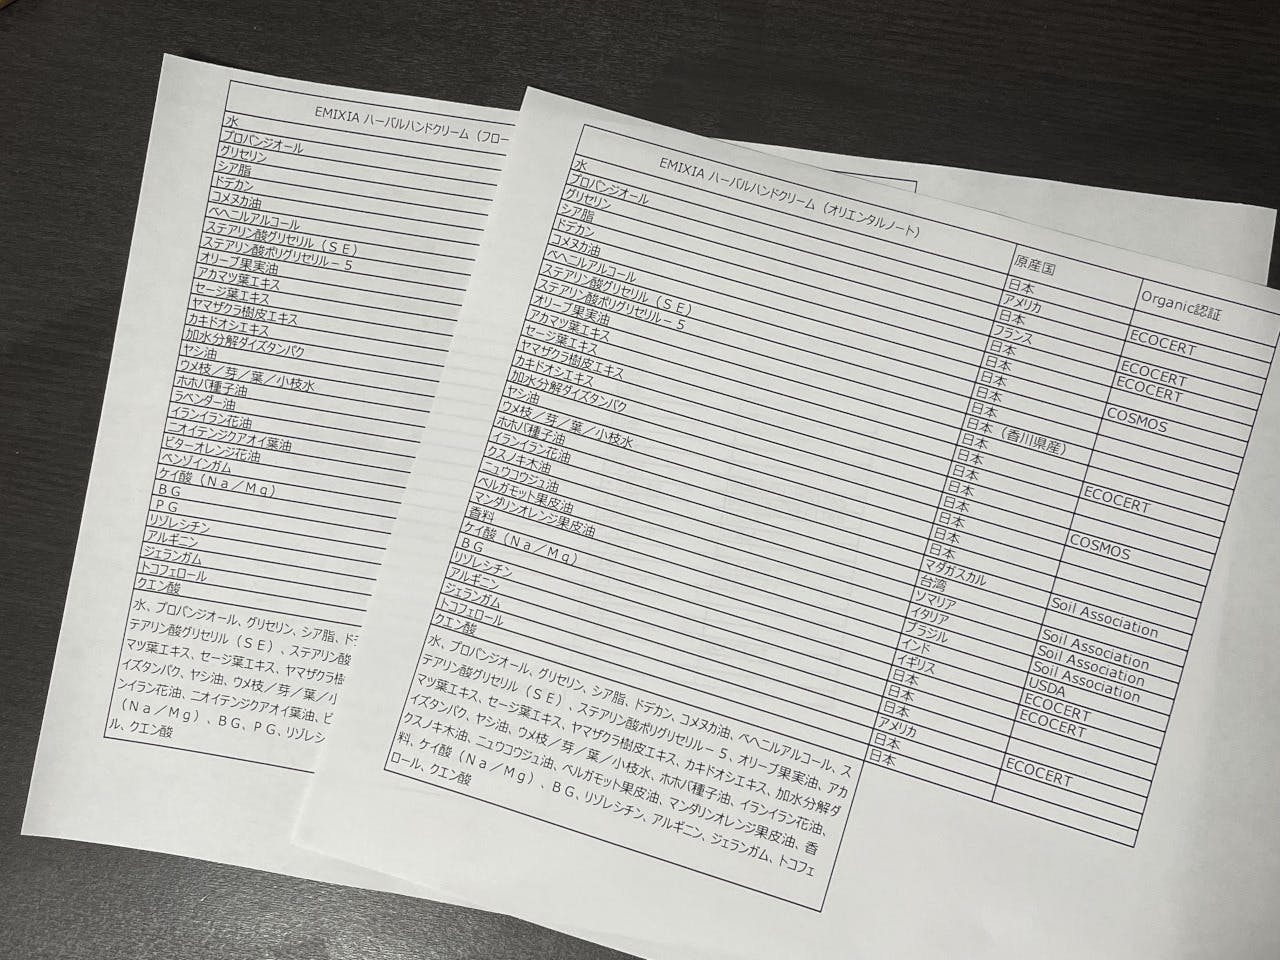 EMIXIA ハーバルハンドクリーム（フロー
水
プロパンジオール
グリセリン
シア脂
ドデカン
コメヌカ油
ベヘニルアルコール
ステアリン酸グリセリル（ＳＥ）
ステアリン酸ポリグリセリル－５
オリーブ果実油
アカマツ葉エキス
セージ葉エキス
ヤマザクラ樹皮エキス
カキドオシエキス
加水分解ダイズタンパク
ヤシ油
ウメ枝／芽／葉／小枝水
ホホバ種子油
ラベンダー油
イランイラン花油
ニオイテンジクアオイ葉油
ビターオレンジ花油
ベンゾインガム
ケイ酸（Ｎａ／Ｍｇ）
ＢＧ
ＰＧ
リゾレシチン
アルギニン
ジェランガム
トコフェロール
クエン酸
水、プロパンジオール、グリセリン、シア脂、ド
テアリン酸グリセリル（ＳＥ）、ステアリン酸
マツ葉エキス、セージ葉エキス、ヤマザクラ樹
イズタンパク、ヤシ油、ウメ枝／芽／葉／小
ンイラン花油、ニオイテンジクアオイ葉油、ビ
（Ｎａ／Ｍｇ）、ＢＧ、ＰＧ、リゾレシ
ル、クエン酸
EMIXIA ハーバルハンドクリーム（オリエンタルノート）
原産国
Organic認証
水
プロパンジオール
グリセリン
シア脂
ドデカン
コメヌカ油
ベヘニルアルコール
ステアリン酸グリセリル（ＳＥ）
ステアリン酸ポリグリセリル－５
オリーブ果実油
アカマツ葉エキス
セージ葉エキス
ヤマザクラ樹皮エキス
カキドオシエキス
加水分解ダイズタンパク
ヤシ油
ウメ枝／芽／葉／小枝水
ホホバ種子油
イランイラン花油
クスノキ木油
ニュウコウジュ油
ベルガモット果皮油
マンダリンオレンジ果皮油
香料
ケイ酸（Ｎａ／Ｍｇ）
ＢＧ
リゾレシチン
アルギニン
ジェランガム
トコフェロール
クエン酸
日本
アメリカ
日本
フランス
日本
日本
日本
日本
日本
日本（香川県産）
日本
日本
日本
日本
日本
日本
日本
日本
マダガスカル
台湾
ソマリア
イタリア
ブラジル
インド
イギリス
日本
日本
日本
アメリカ
日本
日本
ECOCERT
ECOCERT
ECOCERT
COSMOS
ECOCERT
COSMOS
Soil Association
Soil Association
Soil Association
Soil Association
USDA
ECOCERT
ECOCERT
ECOCERT
水、プロパンジオール、グリセリン、シア脂、ドデカン、コメヌカ油、ベヘニルアルコール、ス
テアリン酸グリセリル（ＳＥ）、ステアリン酸ポリグリセリル－５、オリーブ果実油、アカ
マツ葉エキス、セージ葉エキス、ヤマザクラ樹皮エキス、カキドオシエキス、加水分解ダ
イズタンパク、ヤシ油、ウメ枝／芽／葉／小枝水、ホホバ種子油、イランイラン花油、
クスノキ木油、ニュウコウジュ油、ベルガモット果皮油、マンダリンオレンジ果皮油、香
料、ケイ酸（Ｎａ／Ｍｇ）、ＢＧ、リゾレシチン、アルギニン、ジェランガム、トコフェ
ロール、クエン酸